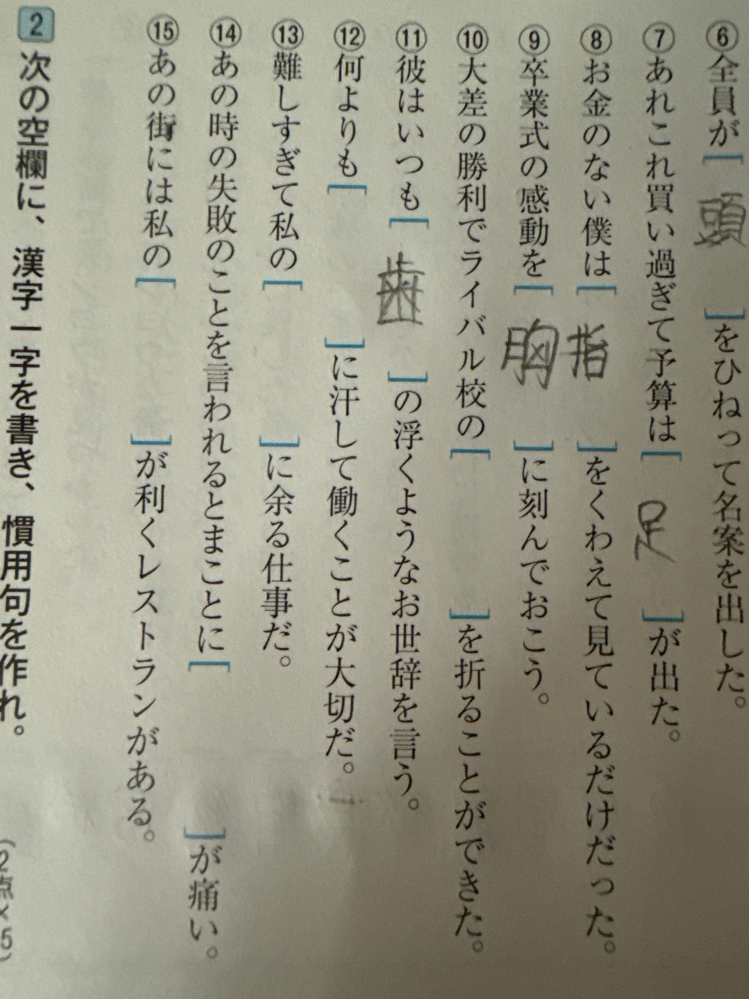 ⑥全員が[ 頭 ]をひねって名案を出した。
⑦あれこれ買い過ぎて予算は[ 足 ]が出た。
⑧お金のない僕は[ 指 ]をくわえて見ているだけだった。
⑨卒業式の感動を[ 胸 ]に刻んでおこう。
⑩大差の勝利でライバル校の[ ]を折ることができた。
⑪彼はいつも[ 歯 ]の浮くようなお世辞を言う。
⑫何よりも[ ]に汗して働くことが大切だ。
⑬難しすぎて私の[ ]に余る仕事だ。
⑭あの時の失敗のことを言われるとまことに[ ]が痛い。
⑮あの街には私の[ ]が利くレストランがある。
2 次の空欄に、漢字一字を書き、慣用句を作れ。(2点×5)